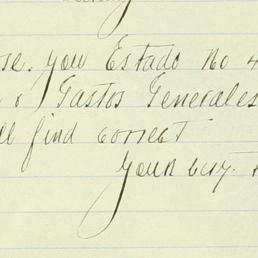 se. you Estado No 4
& Gastos Generales
ll find correct
your